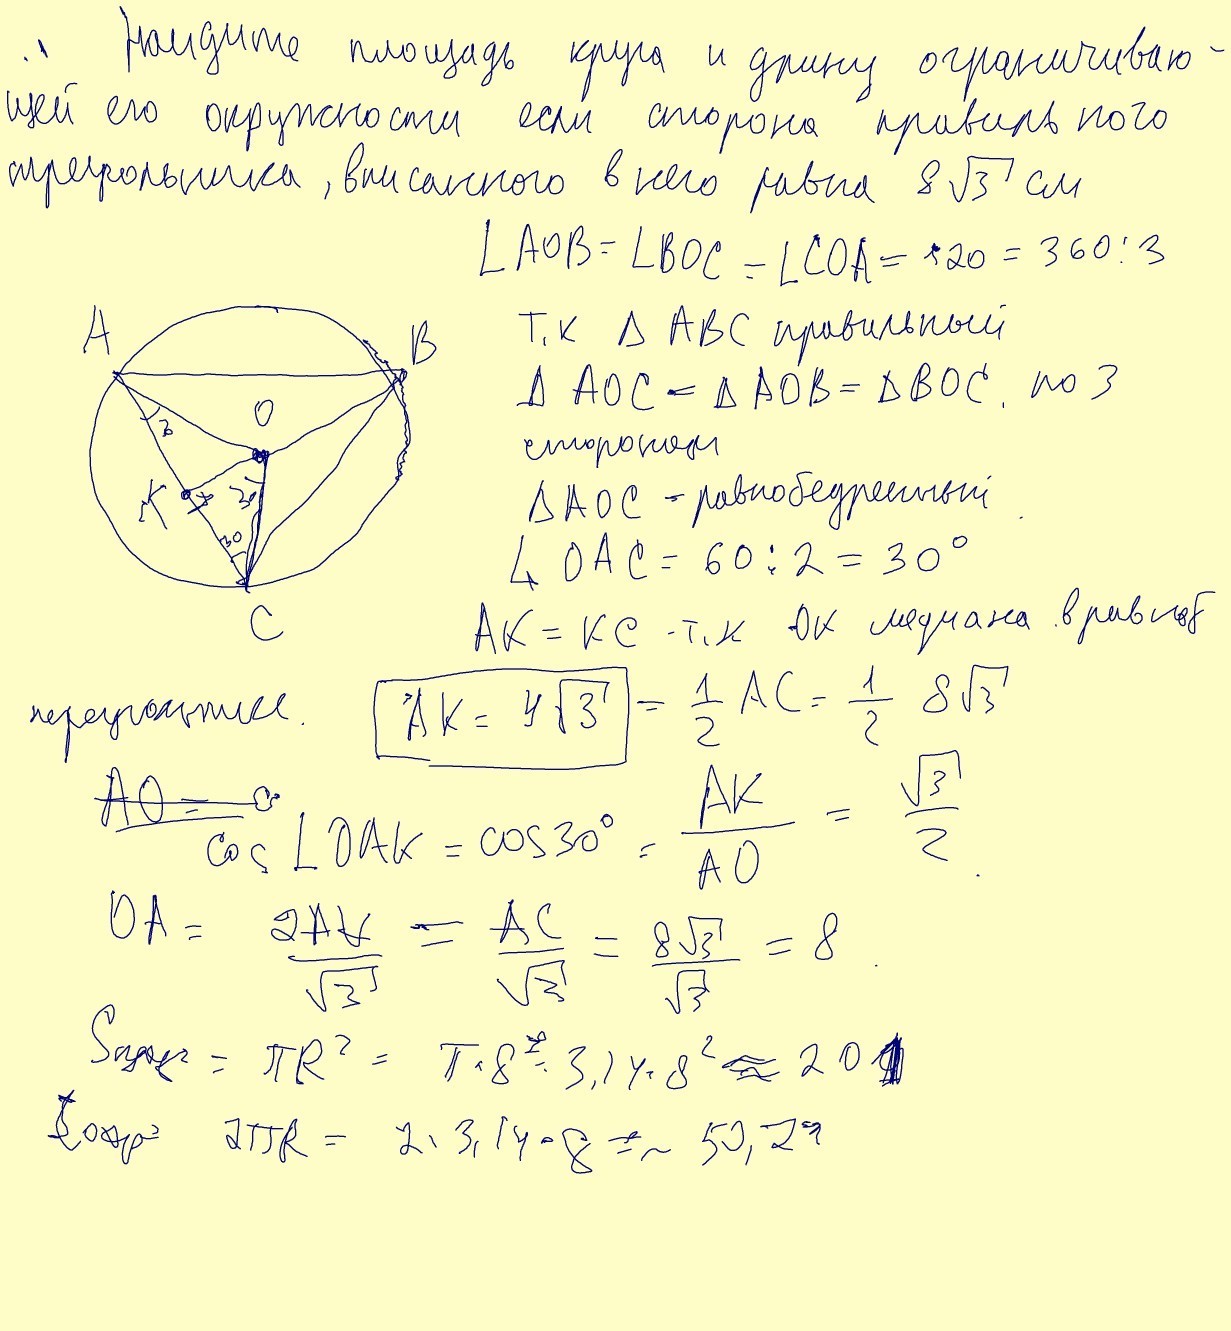 Найдите площадь круга и длину ограничиваю-
щей его окружности если сторона правильного
треугольника, вписанного в него равна 8√3 см
∠AOB = ∠BOC = ∠COA = 120 = 360:3
A
B
т.к Δ ABC правильный
O
Δ AOC = Δ AOB = Δ BOC. по 3
сторонам
K
30
ΔAOC - равнобедренный.
30
∠ OAC = 60:2 = 30°
C
AK = KC т.к OK медиана в равноб
треугольнике. AK = 4√3 = 1/2 AC = 1/2 8√3
AO =
cos ∠OAK = cos30° = AK/AO = √3/2.
OA = 2AK/√3 = AC/√3 = 8√3/√3 = 8.
= πR² = π·8² = 3,14·8² ≈ 201
Lокр = 2πR = 2·3,14·8 = ~ 50,24